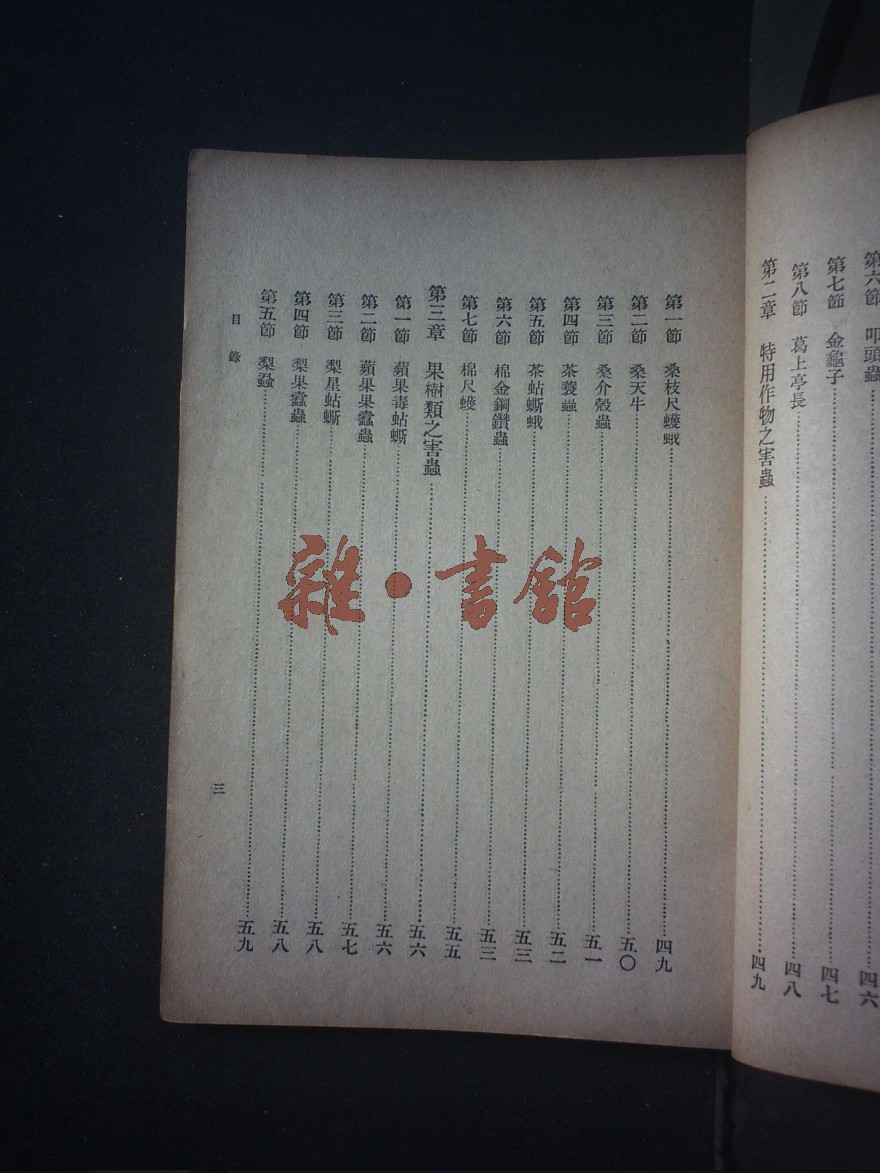 第六節 叩頭蟲 四六
第七節 金龜子 四七
第八節 葛上亭長 四八
第二章 特用作物之害蟲 四九
第一節 桑枝尺蠖蛾 四九
第二節 桑天牛 五〇
第三節 桑介殼蟲 五一
第四節 茶蓑蟲 五二
第五節 茶蛄蟖蛾 五三
第六節 棉金鋼鑽蟲 五三
第七節 棉尺蠖 五五
第三章 果樹類之害蟲 五六
第一節 蘋果毒蛄蟖 五六
第二節 蘋果果蠹蟲 五七
第三節 梨星蛄蟖 五八
第四節 梨果蠹蟲 五八
第五節 梨蝨 五九
目錄
三
雜·書館